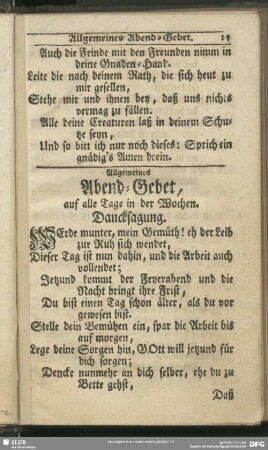 Allgemeines Abend-Gebet. 15
Auch die Feinde mit den Freunden nimm in
deine Gnaden-Hand.
Leite die nach deinem Rath, die sich heut zu
mir gesellen,
Stehe mir und ihnen bey, daß uns nichts
vermag zu fällen.
Alle deine Creaturen laß in deinem Schu-
tze seyn,
Und so bitt ich nur noch dieses: Sprich ein
gnädig's Amen drein.
Allgemeines
Abend-Gebet,
auf alle Tage in der Wochen.
Dancksagung.
WErde munter, mein Gemüth! eh der Leib
zur Ruh sich wendet,
Dieser Tag ist nun dahin, und die Arbeit auch
vollendet;
Jetzund kommt der Feyerabend und die
Nacht bringt ihre Frist,
Du bist einen Tag schon älter, als du vor
gewesen bist.
Stelle dein Bemühen ein, spar die Arbeit bis
auf morgen,
Lege deine Sorgen hin, GOtt will jetzund für
dich sorgen;
Dencke nunmehr an dich selber, ehe du zu
Bette gehst,
Daß
SLUB